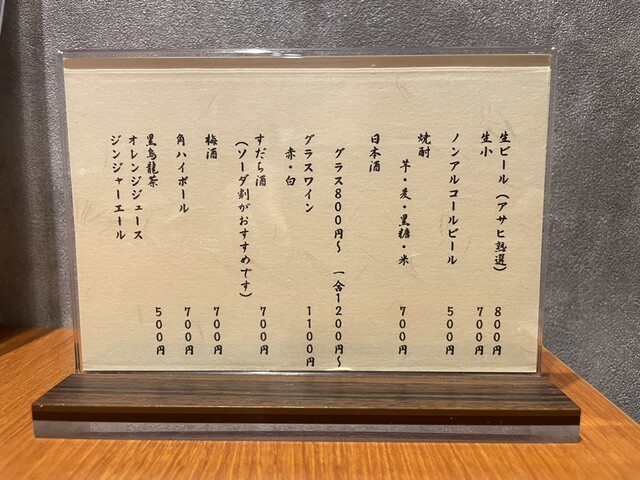 生ビール（アサヒ熟選） 800円
生小 700円
ノンアルコールビール 500円
焼酎
芋・麦・黒糖・米 700円
日本酒
グラス800円～ 一合1200円～
グラスワイン
赤・白 1100円
すだち酒 700円
（ソーダ割がおすすめです）
梅酒 700円
角ハイボール 700円
黒烏龍茶 500円
オレンジジュース
ジンジャーエール